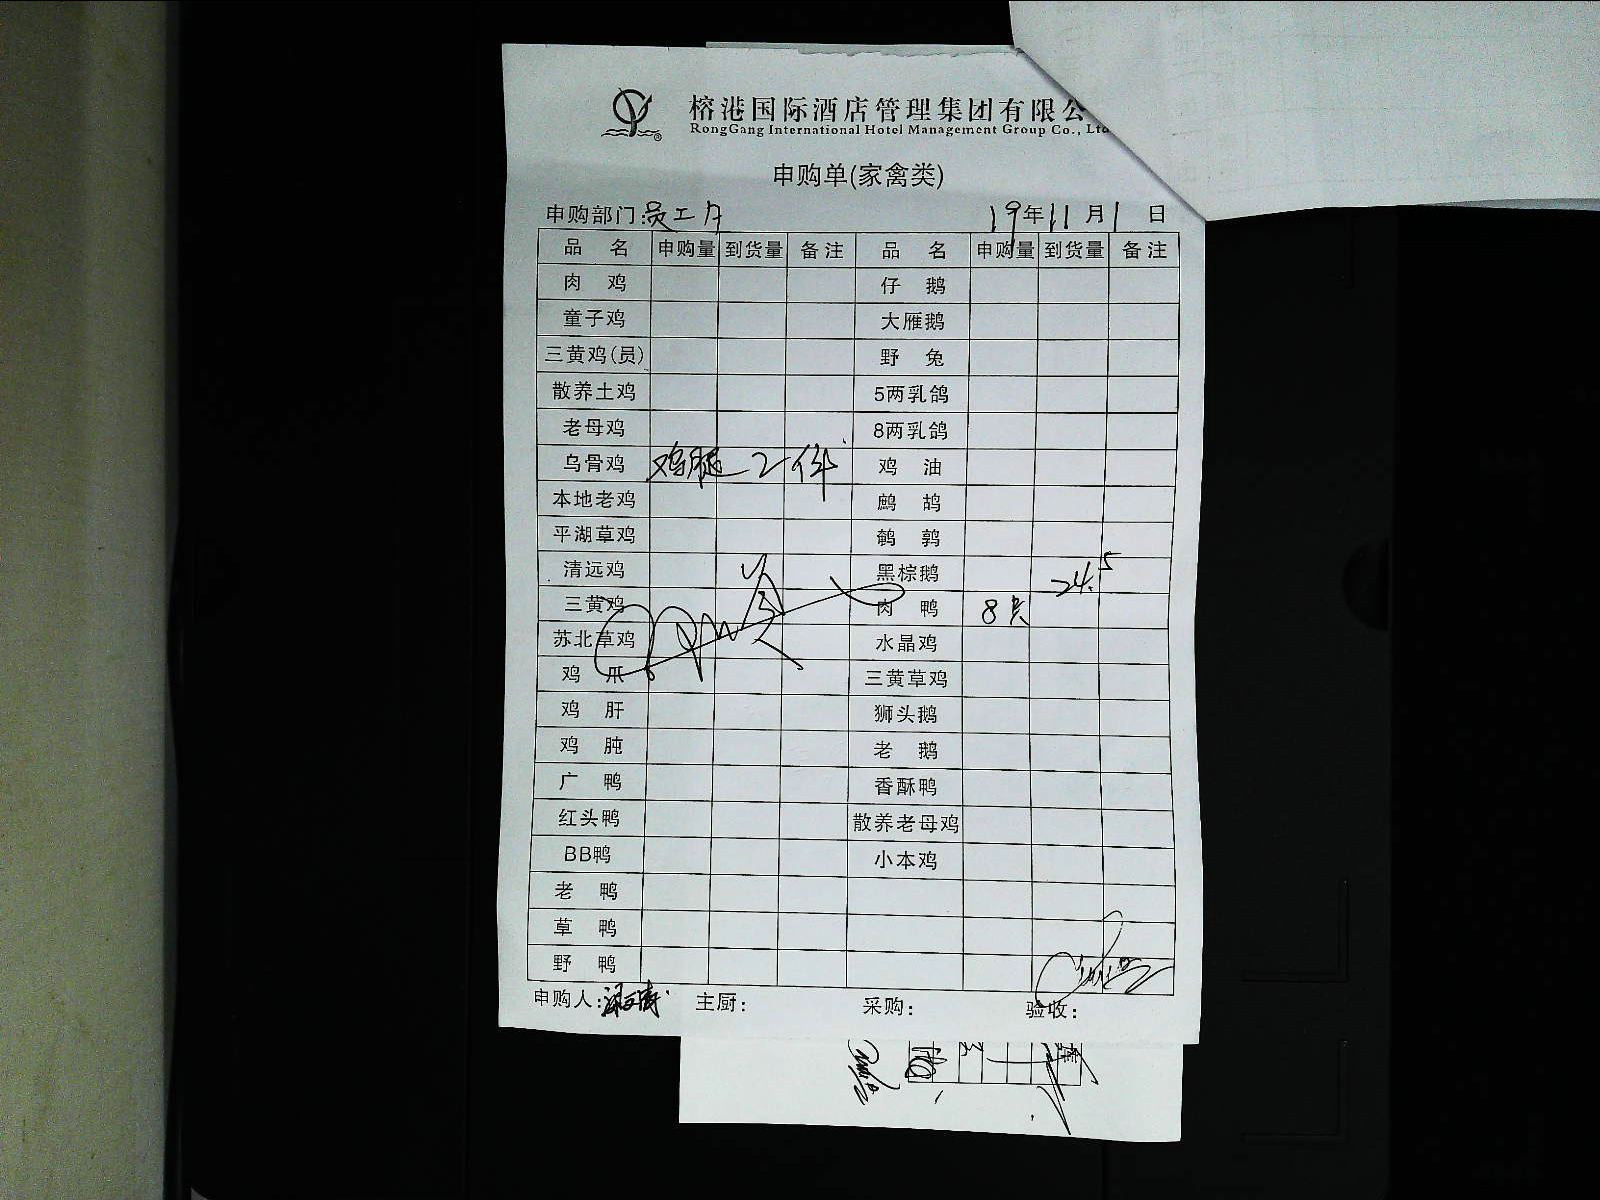 榕港国际酒店管理集团有限公
RongGang International Hotel Management Group Co., Ltd
申购单(家禽类)
申购部门:员工 19年11月1日
品名 申购量 到货量 备注 品名 申购量 到货量 备注
肉鸡 仔鹅
童子鸡 大雁鹅
三黄鸡(员) 野兔
散养土鸡 5两乳鸽
老母鸡 8两乳鸽
乌骨鸡 鸡腿 2件 鸡油
本地老鸡 鹧鸪
平湖草鸡 鹌鹑
清远鸡 黑棕鹅 24.5
三黄鸡 肉鸭 8只
苏北草鸡 水晶鸡
鸡爪 三黄草鸡
鸡肝 狮头鹅
鸡肫 老鹅
广鸭 香酥鸭
红头鸭 散养老母鸡
BB鸭 小本鸡
老鸭
草鸭
野鸭
申购人: 主厨: 采购: 验收: